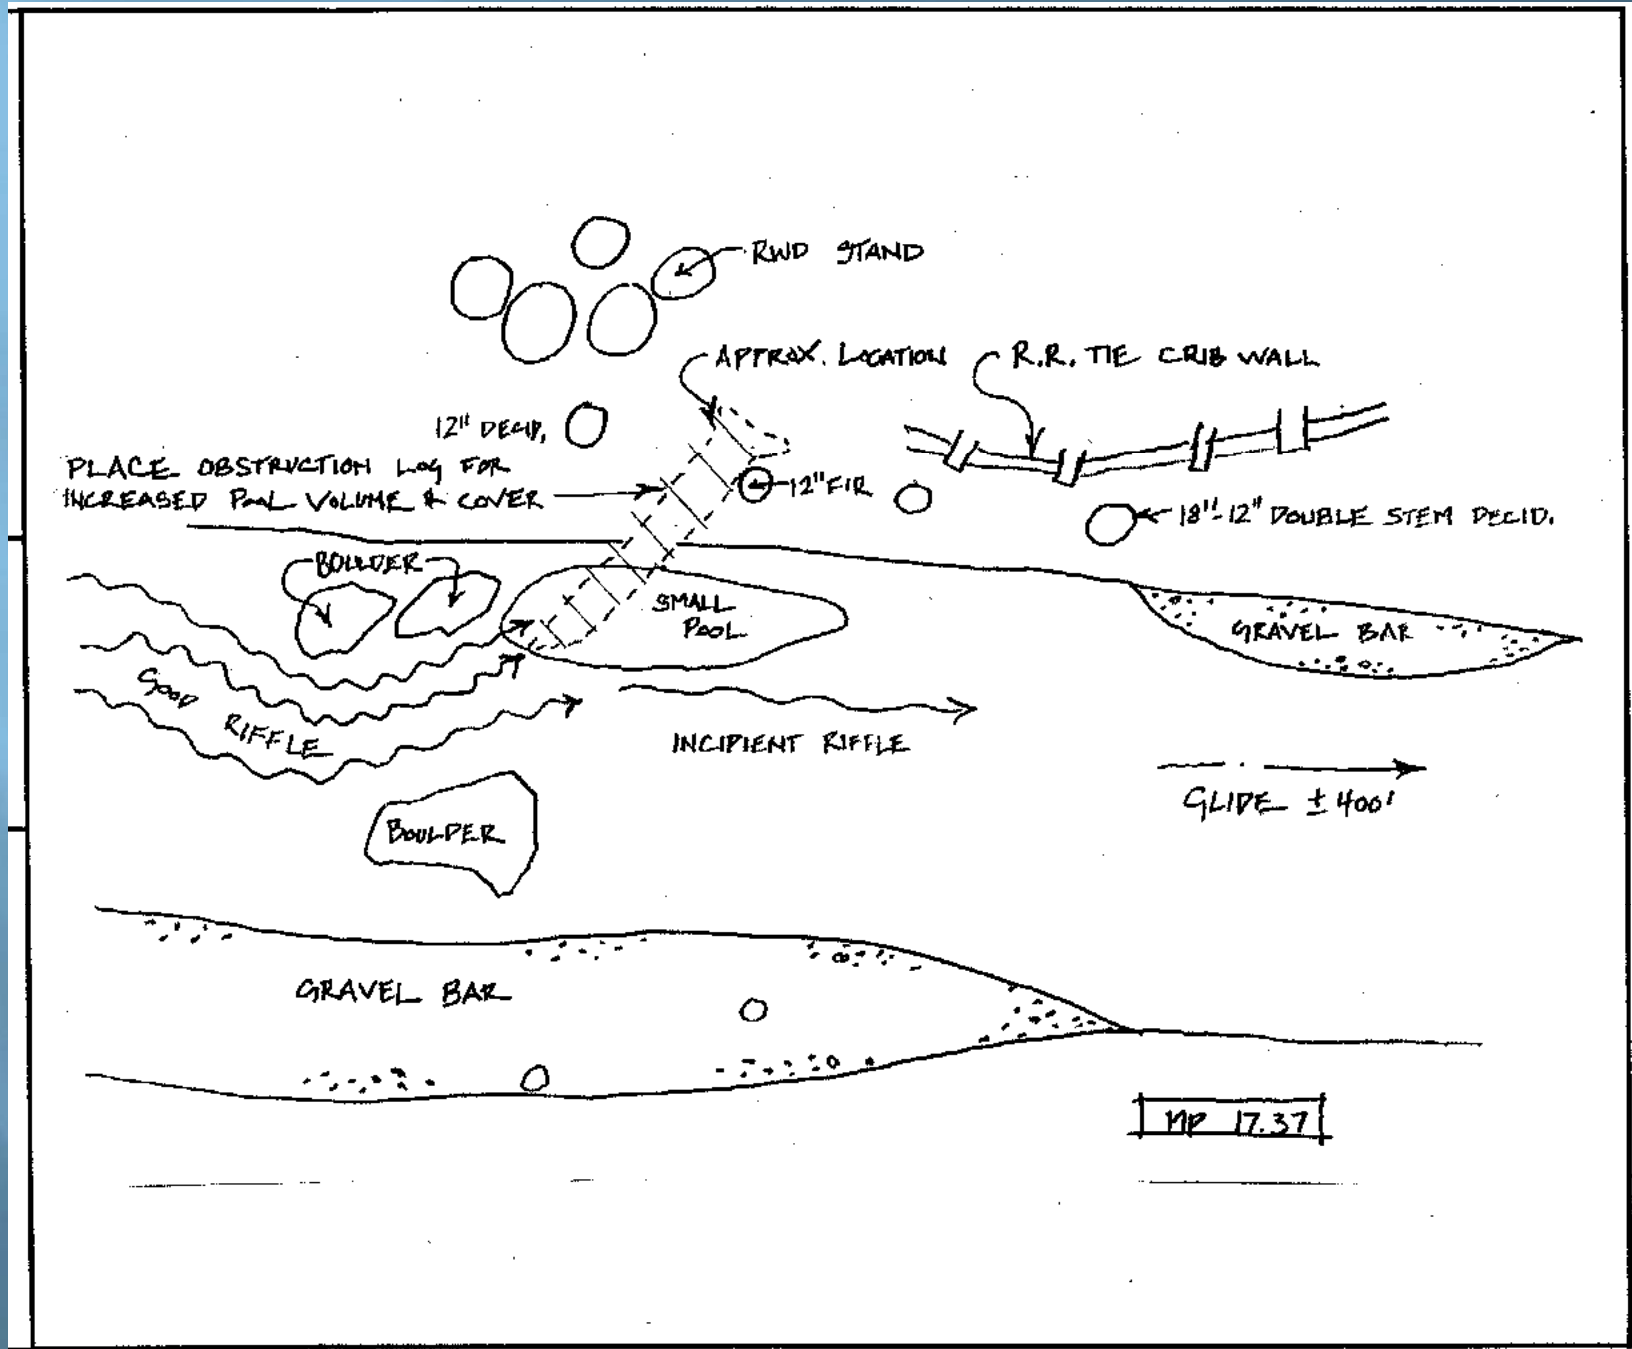 RWD STAND
APPROX. LOCATION
R.R. TIE CRIB WALL
12" DECID.
PLACE OBSTRUCTION LOG FOR
INCREASED POOL VOLUME & COVER
12" FIR
18"-12" DOUBLE STEM DECID.
BOULDER
SMALL
POOL
GRAVEL BAR
GOOD
RIFFLE
INCIPIENT RIFFLE
GLIDE ±400'
BOULDER
GRAVEL BAR
MP 17.37